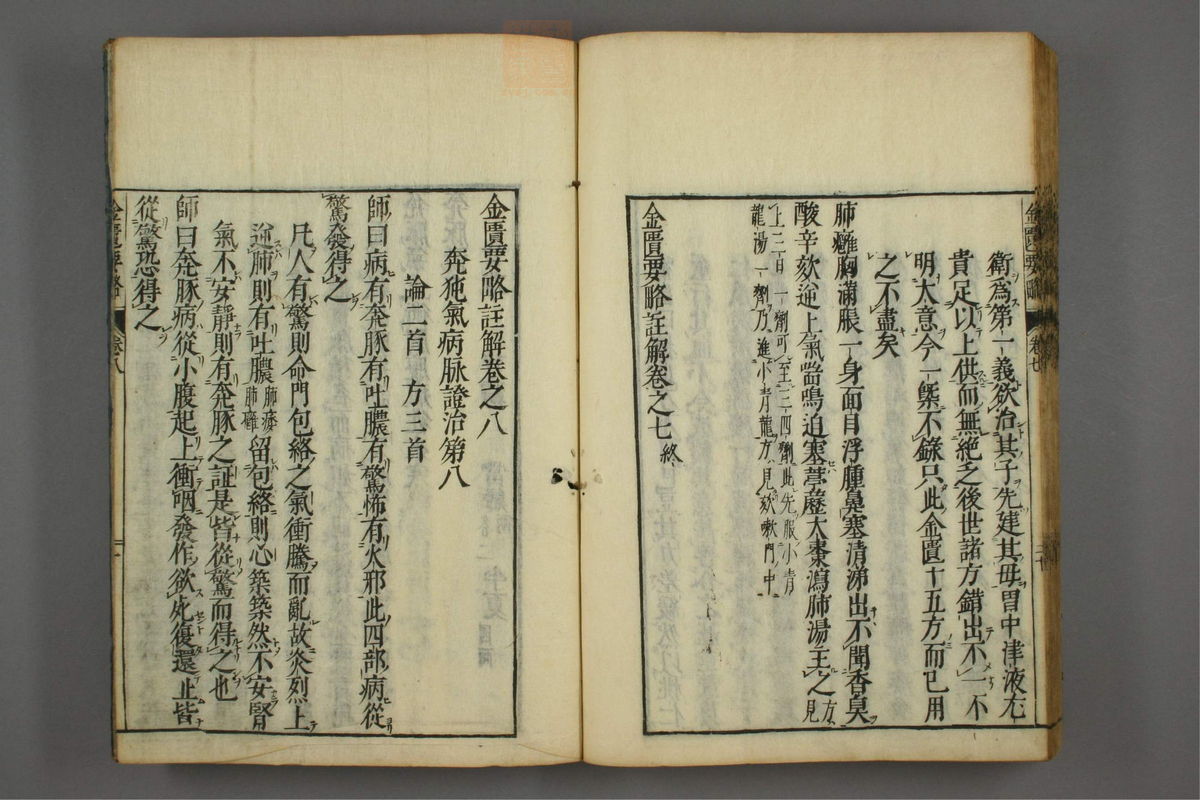 金匱要略 卷七 二十
衛為第一義欲治其子先建其母胃中津液充
貴足以上供而無絕乏後世諸方錯出不一不
明大意今一槩不錄只此金匱十五方而已用
之不盡矣
肺癰胸滿脹一身面目浮腫鼻塞清涕出不聞香臭
酸辛欬逆上氣喘鳴迫塞葶藶大棗瀉肺湯主之方見
上三日一劑可至三四劑此先服小青
龍湯一劑乃進小青龍方見欬嗽門中
金匱要略註解卷之七終
金匱要略註解卷之八
奔㹠氣病脉證治第八
論二首 方三首
師曰病有奔豚有吐膿有驚怖有火邪此四部病從
驚發得之
凡人有驚則命門包絡之氣衝騰而亂故炎烈上
逆肺則有吐膿肺痿肺癰留包絡則心築築然不安腎
氣不安靜則有奔豚之証是皆從驚而得之也
師曰奔豚病從小腹起上衝咽發作欲死復還止皆
從驚恐得之
金匱要略 卷八 一